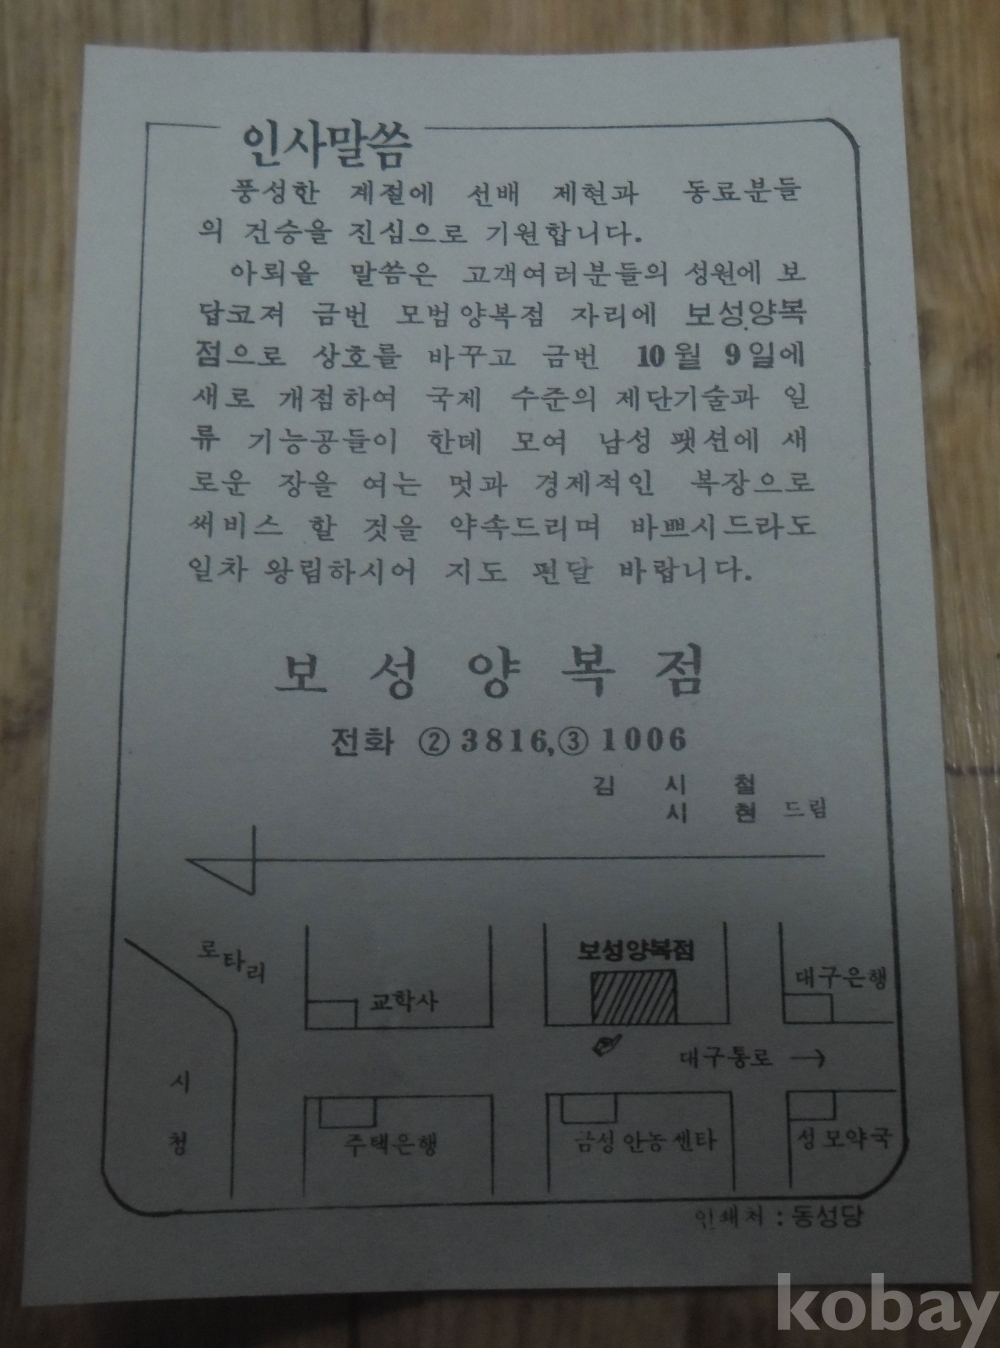 인사말씀
풍성한 계절에 선배 제현과 동료분들
의 건승을 진심으로 기원합니다.
아뢰올 말씀은 고객여러분들의 성원에 보
답코져 금번 모범양복점 자리에 보성양복
점으로 상호를 바꾸고 금번 10월 9일에
새로 개점하여 국제 수준의 제단기술과 일
류 기능공들이 한데 모여 남성 팻션에 새
로운 장을 여는 멋과 경제적인 복장으로
써비스 할 것을 약속드리며 바쁘시드라도
일차 왕림하시어 지도 편달 바랍니다.
보성양복점
전화 ② 3816, ③ 1006
김 시 철
시 현 드림
로타리
보성양복점
대구은행
교학사
대구통로 →
시청
주택은행
금성 안농 쎈타
성모약국
인쇄처 : 동성당
kobay